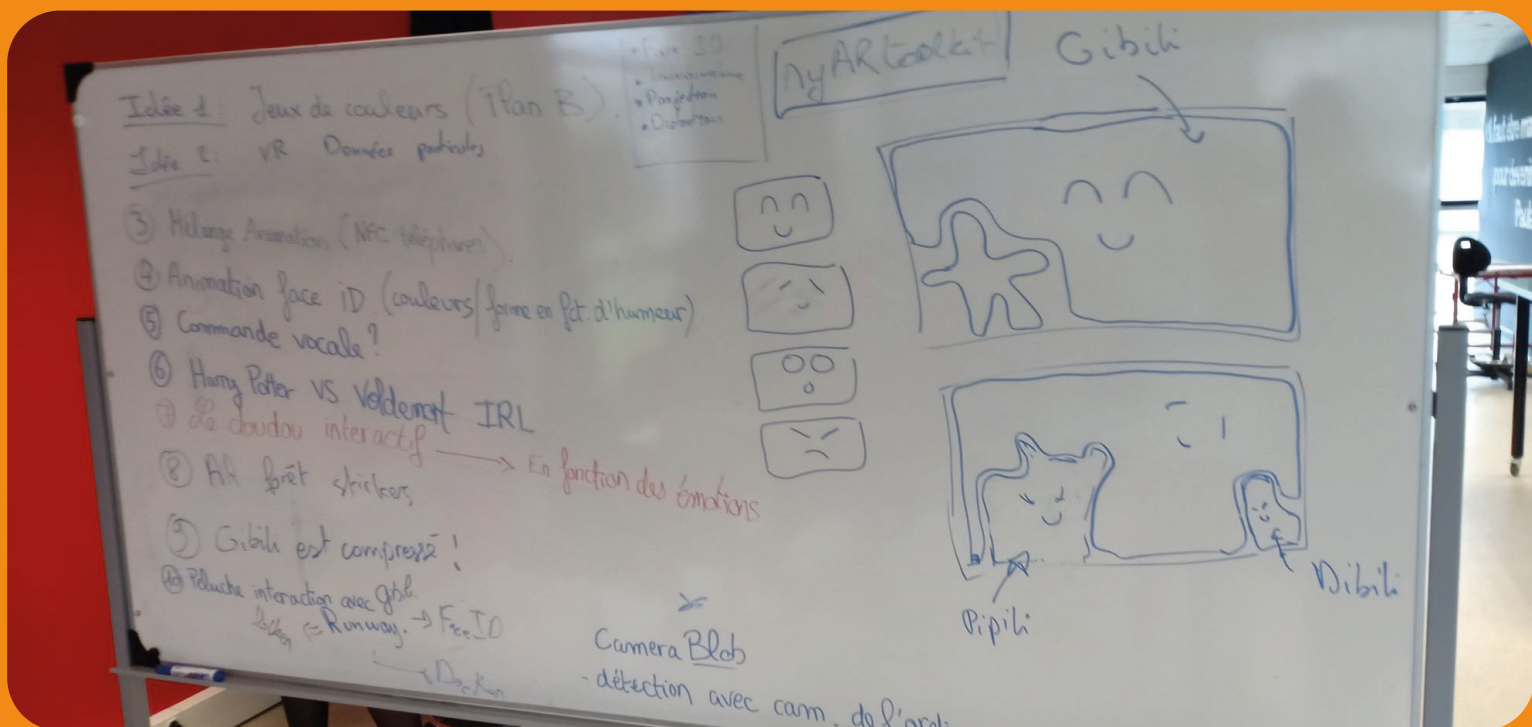 Idée 1 : Jeux de couleurs (Plan B).
Idée 2 : VR Données particules
③ Mélange Animation (NFC téléphones).
④ Animation face iD. (couleurs/forme en fct. d'humeur)
⑤ Commande vocale?
⑥ Harry Potter VS Voldemort IRL
⑦ Le doudou interactif → En fonction des émotions
⑧ AR forêt stickers
⑨ Gibili est compressé !
⑩ Peluche interaction avec gbl.
Runway. → Face ID
• Face ID
• Projection
nyARtoolkit
Gibili
Pipili
Dibili
Camera Blob
- détection avec cam. de l'ordi